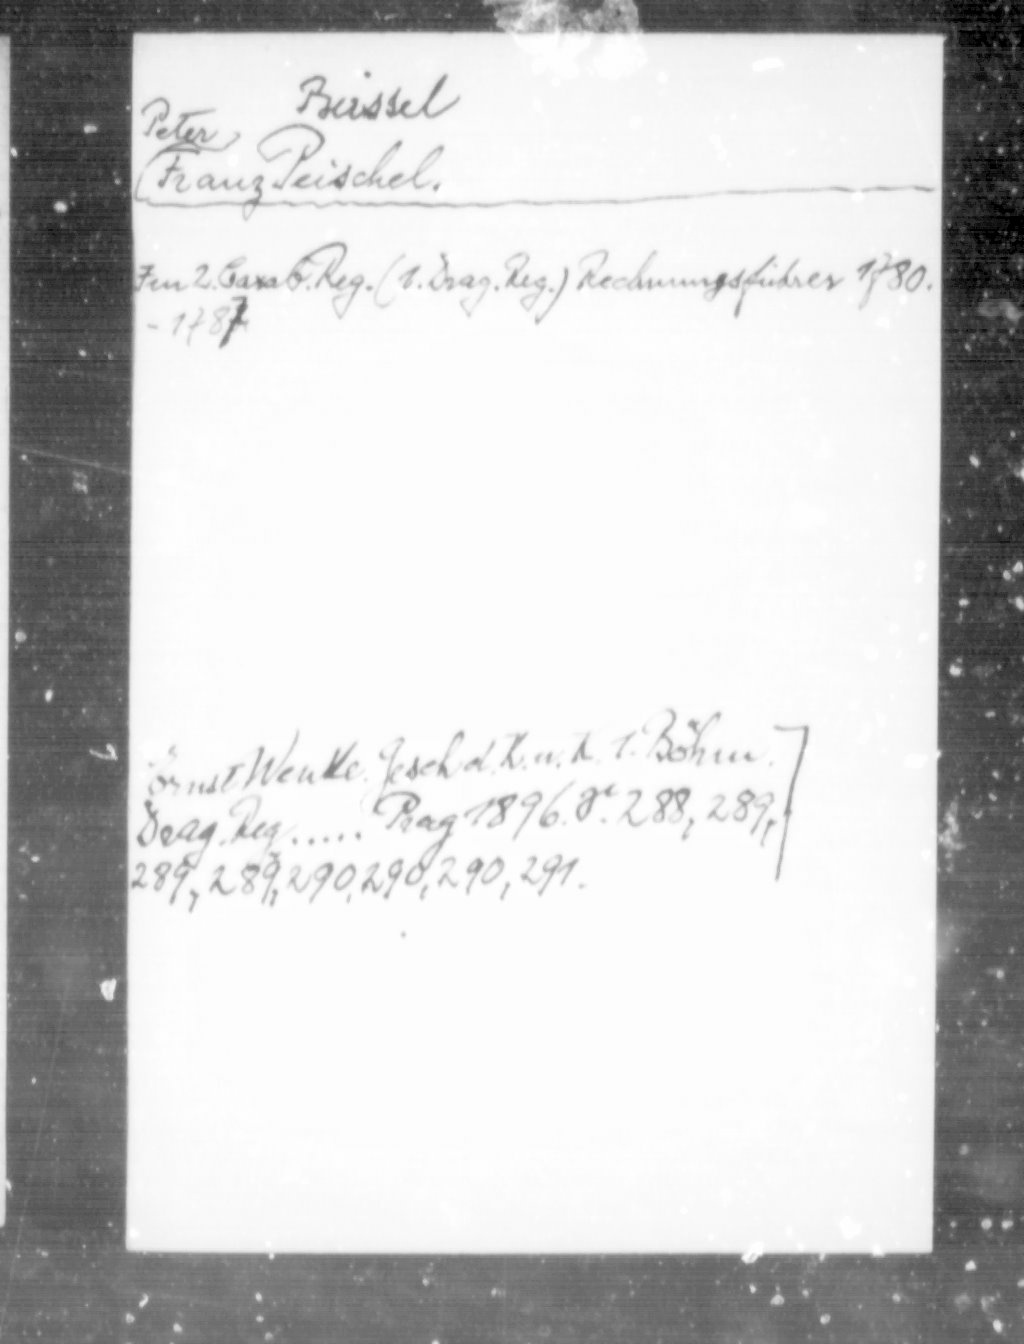 Beissel
Peter
(Franz Peischel.
Im 2. Carab. Reg. (1. Drag. Reg.) Rechnungsführer 1780.
- 1787
Ernst Wenkle. Gesch. d. K. u. K. 1. Böhm.
Drag. Reg. ..... Prag 1896. S. 288, 289,
289, 289, 290, 290, 290, 291.